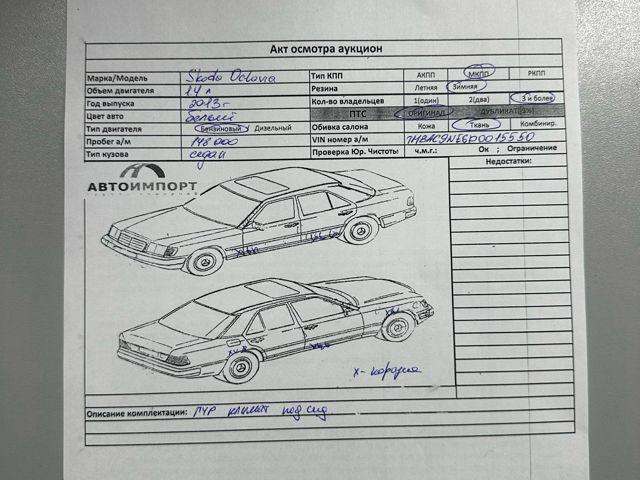 Акт осмотра аукцион
Марка/Модель Skoda Octavia Тип КПП АКПП МКПП РКПП
Объем двигателя 1.4 л Резина Летняя Зимняя
Год выпуска 2013 г Кол-во владельцев 1(один) 2(два) 3 и более
Цвет авто белый ПТС ОРИГИНАЛ ДУБЛИКАТ
Тип двигателя Бензиновый Дизельный Обивка салона Кожа Ткань Комбинир.
Пробег а/м 148 000 VIN номер а/м
Тип кузова седан Проверка Юр. Чистоты ч.м.г.: Ок ; Ограничение
АВТОИМПОРТ Недостатки:
х - корозия
Описание комплектации: ГУР климат под сид